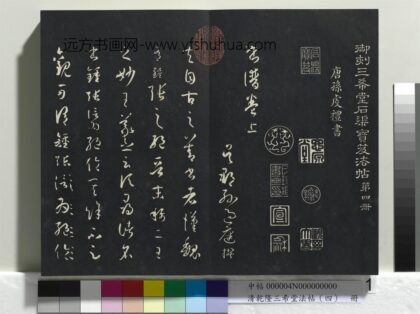 远方书画网-www.yfshuhua.com
御刻三希堂石渠寶笈法帖第四冊
唐孫虔禮書
書譜卷上
吳郡孫過庭撰
夫自古之善書者漢魏
有鍾張之絶晉末稱二王
之妙王羲之云頃尋諸名
書鍾張信爲絶倫其餘不足
觀可謂鍾張云沒而羲獻繼
1
中帖 000004N000000000
清乾隆三希堂法帖(四) 冊